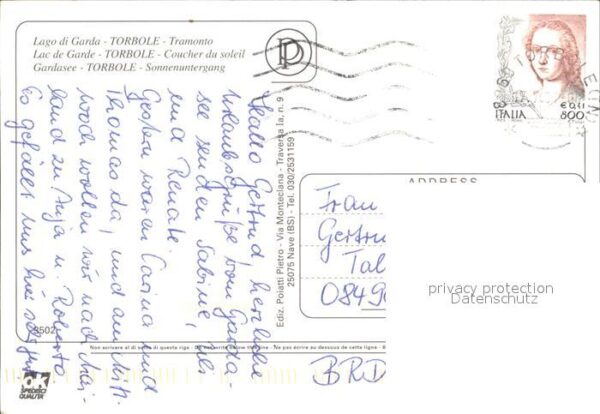 Lago di Garda - TORBOLE - Tramonto
Lac de Garde - TORBOLE - Coucher du soleil
Gardasee - TORBOLE - Sonnenuntergang
PD
ITALIA
€ 0,41
800
Hallo Gertrud, herzliche
Urlaubsgrüße vom Garda-
see senden Sabine, Uli
und Renate.
Gestern waren Carina und
Thomas da! und am Mitt-
woch wollen wir nach Mai-
land zu Anja u. Roberto
Es gefällt uns hier sehr gut
Ediz. Polatti Pietro - Via Monteclana - Traversa Ia, n. 9
25075 Nave (BS) - Tel. 030/2531159
ADDRESS
Frau
Gertru
Tal
08496
BRD
privacy protection
Datenschutz
3502
Non scrivere al di sotto di questa riga - Do not write below this line - Ne pas écrire au dessous de cette ligne -
SPEDISCI
QUALITÀ